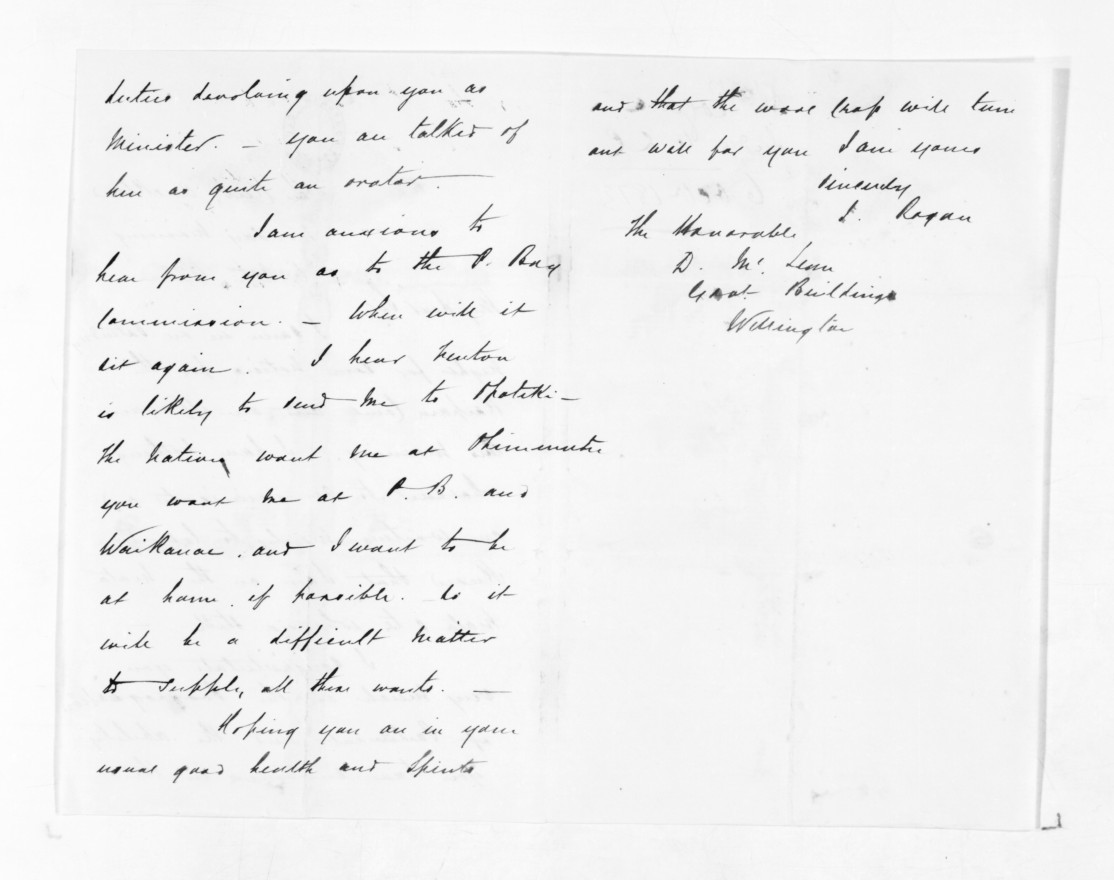 duties devolving upon you as
Minister. - you are talked of
here as quite an orator. -
I am anxious to
hear from you as to the P. Bay
Commission. - When will it
sit again. I hear Fenton
is likely to send me to Opotiki -
The Natives want me at Ohinemutu
you want me at P. B. and
Waikanae. and I want to be
at home if possible. So it
will be a difficult matter
to supply all these wants. -
Hoping you are in your
usual good health and Spirits
and that the wool crop will turn
out well for you I am yours
sincerely
J. Rogan
The Honorable
D. Mc. Lean
Govt. Buildings
Wellington